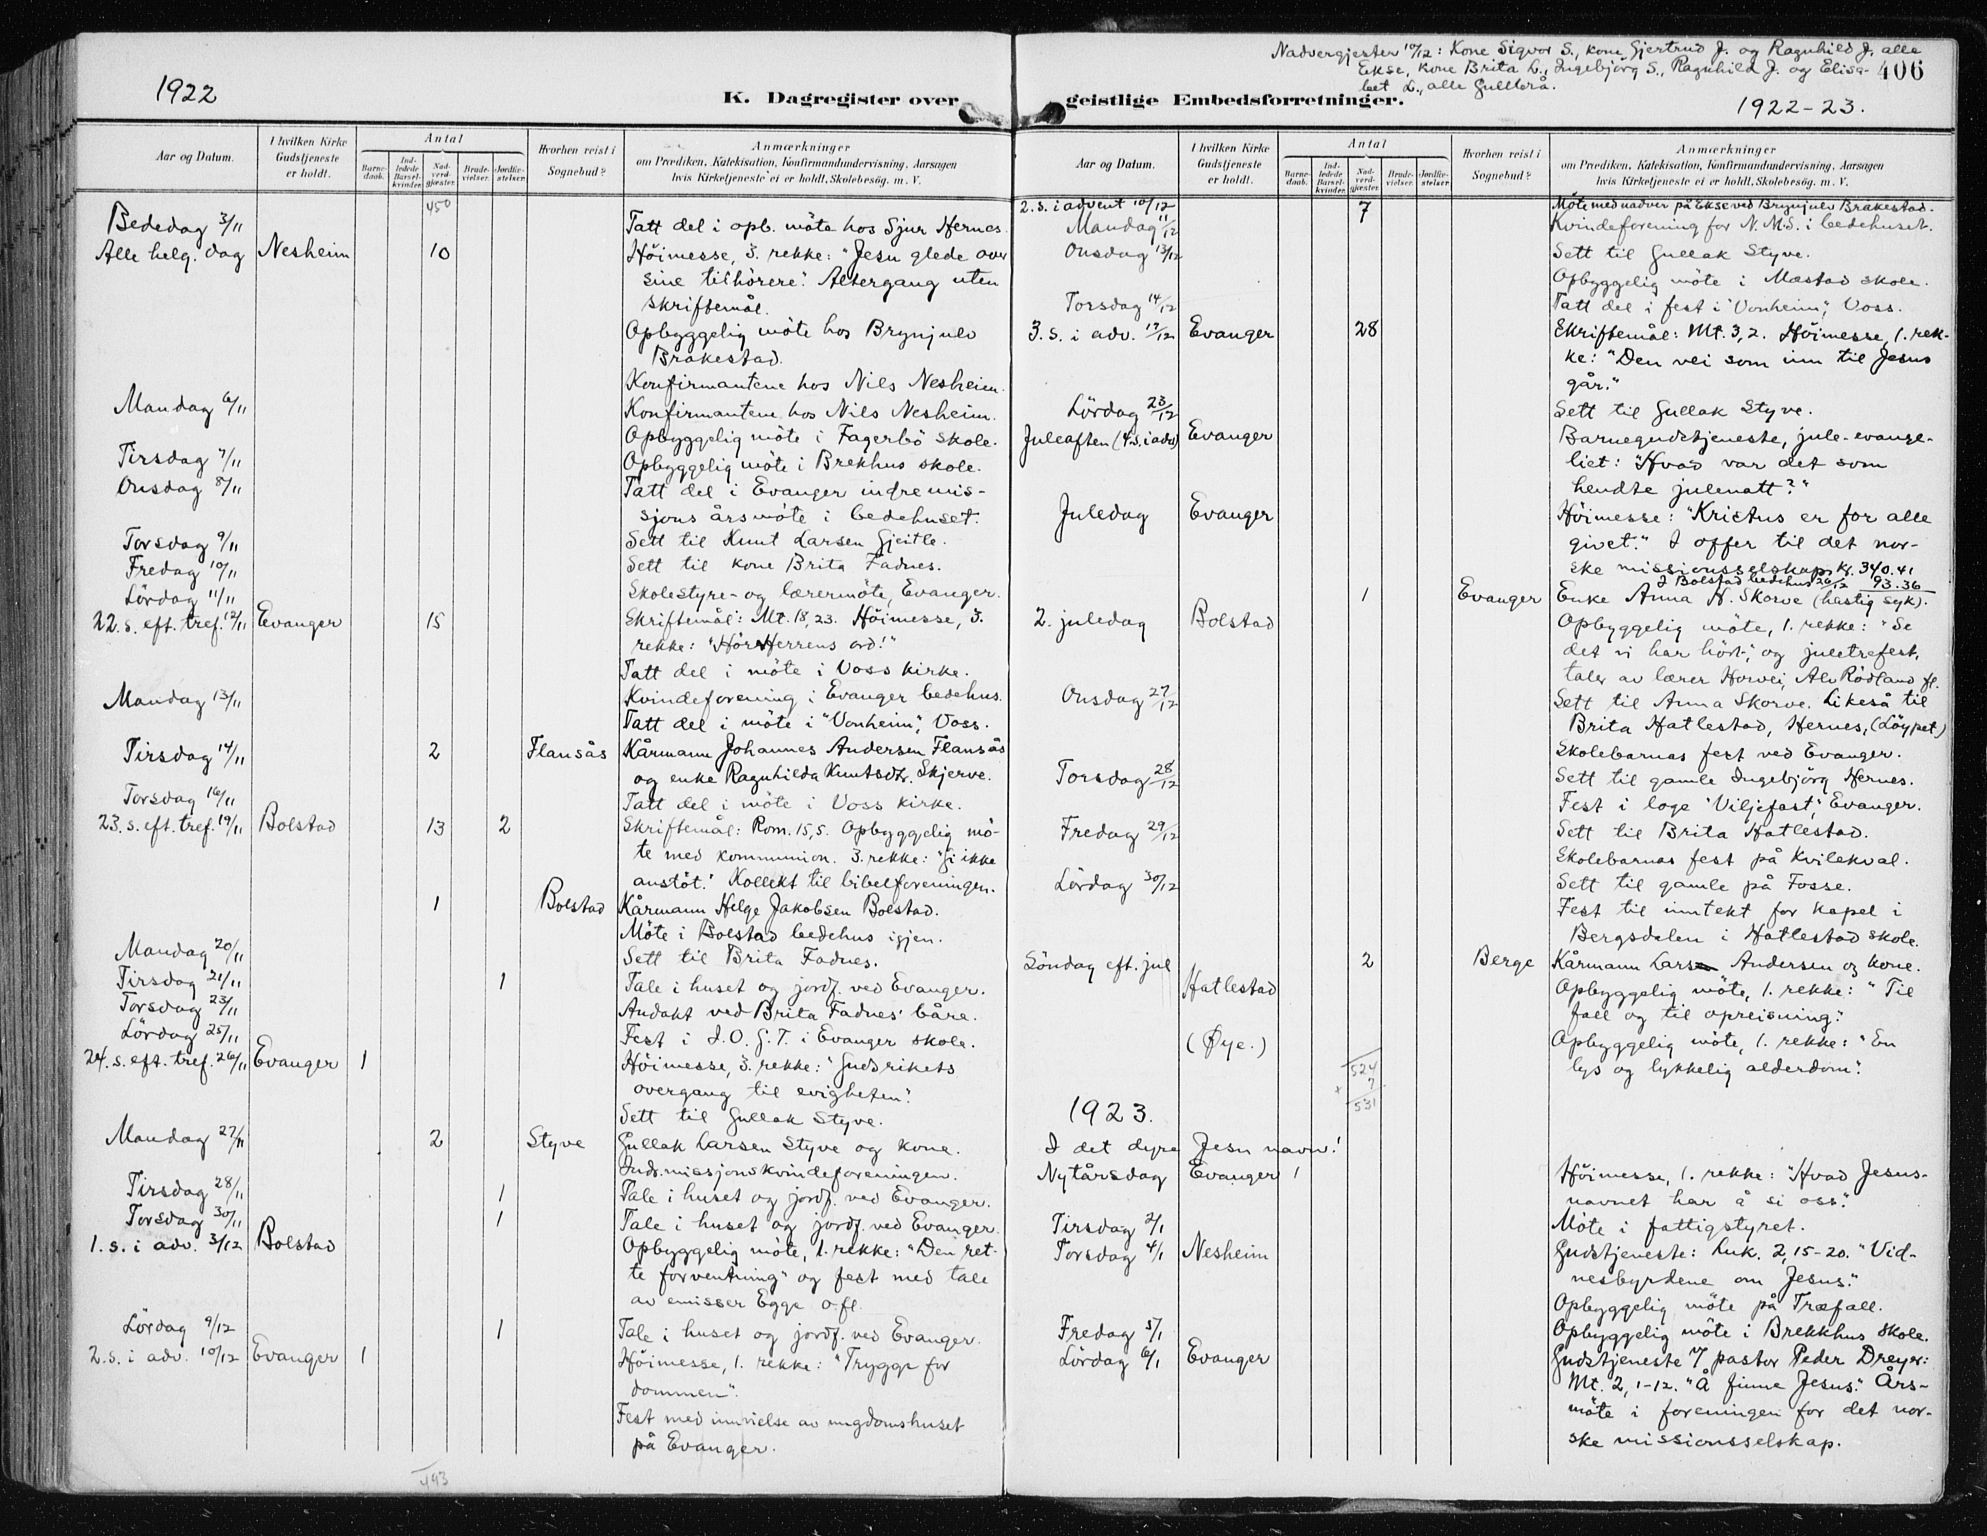 1922
K. Dagregister over
Aar og Datum.
I hvilken Kirke Gudstjeneste er holdt.
Antal
Barnedaab.
Indledede Barselkvinder.
Nadverdgjester.
Brudevielser.
Jordfæstelser.
Hvorhen reist i Sognebud?
Anmærkninger
om Prædiken, Katekisation, Konfirmandundervisning, Aarsagen
hvis Kirketjeneste ei er holdt, Skolebesøg. m. V.
450
Bededag 3/11 Tatt del i opb. möte hos Sjur Hernes.
Alle helg. dag Nesheim 10 Höimesse, 3. rekke: "Jesu glede over
sine tilhörere." Altergang uten
skriftemål.
Opbyggelig möte hos Brynjulv
Brakestad.
Konfirmantene hos Nils Nesheim.
Mandag 6/11 Konfirmantene hos Nils Nesheim.
Opbyggelig möte i Fagerbö skole.
Tirsdag 7/11 Opbyggelig möte i Brekhus skole.
Onsdag 8/11 Tatt del i Evanger indremis-
sjons årsmöte i bedehuset.
Torsdag 9/11 Sett til Knut Larsen Gjeitle.
Fredag 10/11 Sett til kone Brita Fadnes.
Lördag 11/11 Skolestyre- og lærermöte, Evanger.
22. s. eft. tref. 12/11 Evanger 15 Skriftemål: Mt. 18,23. Höimesse, 3.
rekke: "Hör Herrens ord!"
Tatt del i möte i Voss kirke.
Mandag 13/11 Kvindeforening i Evanger bedehus.
Tatt del i möte i "Vonheim", Voss.
Tirsdag 14/11 2 Flansås Kårmann Johannes Andersen Flansås
og enke Ragnhilda Knutsdtr. Skjerve.
Torsdag 16/11 Tatt del i möte i Voss kirke.
23. s. eft. tref. 19/11 Bolstad 13 2 Skriftemål: Rom. 15,5. Opbyggelig mö-
te med kommunion. 3. rekke: "Gi ikke
anstöt." Kollekt til bibelforeningen.
1 Bolstad Kårmann Helge Jakobsen Bolstad.
Möte i Bolstad bedehus igjen.
Mandag 20/11 Sett til Brita Fadnes.
Tirsdag 21/11 1 Tale i huset og jordf. ved Evanger.
Torsdag 23/11 Andakt ved Brita Fadnes' båre.
Lördag 25/11 Fest i I. O. G. T. i Evanger skole.
24. s. eft. tref. 26/11 Evanger 1 Höimesse, 3. rekke: "Gudsrikets
overgang til evigheten."
Sett til Gullak Styve.
Mandag 27/11 2 Styve Gullak Larsen Styve og kone.
Indr.missjonskvindeforeningen.
Tirsdag 28/11 1 Tale i huset og jordf. ved Evanger.
Torsdag 30/11 1 Tale i huset og jordf. ved Evanger.
1. s. i adv. 3/12 Bolstad Opbyggelig möte, 1. rekke: "Den ret-
te forventning" og fest med tale
av emissær Egge o.fl.
Lördag 9/12 1 Tale i huset og jordf. ved Evanger.
2. s. i adv. 10/12 Evanger 1 Höimesse, 1. rekke: "Trygge for
dommen".
Fest med innvielse av ungdomshuset
på Evanger.
493
Nadvergjester 10/12: Kone Sigvor S., kone Gjertrud J. og Ragnhild J. alle
Ekse, kone Brita L., Ingebjörg S., Ragnhild J. og Elisa-
bet L., alle Gullbrå.
406
geistlige Embedsforretninger.
1922-23.
Aar og Datum.
I hvilken Kirke Gudstjeneste er holdt.
Antal
Barnedaab.
Indledede Barselkvinder.
Nadverdgjester.
Brudevielser.
Jordfæstelser.
Hvorhen reist i Sognebud?
Anmærkninger
om Prædiken, Katekisation, Konfirmandundervisning, Aarsagen
hvis Kirketjeneste ei er holdt, Skolebesøg. m. V.
2. s. i advent 10/12 7 Möte med nadver på Ekse ved Brynjulv Brakestad.
Mandag 11/12 Kvindeforening for N. M. S. i bedehuset.
Onsdag 13/12 Sett til Gullak Styve.
Opbyggelig möte i Mæstad skole.
Torsdag 14/12 Tatt del i fest i "Vonheim", Voss.
3. s. i adv. 17/12 Evanger 28 Skriftemål: Mt. 3,2. Höimesse, 1. rek-
ke: "Den vei som inn til Jesus
går."
Lördag 23/12 Sett til Gullak Styve.
Juleaften (4. s. i adv.) Evanger Barnegudstjeneste, jule-evange-
liet: "Hvad var det som
hendte julenatt?"
Juledag Evanger Höimesse: "Kristus er for alle
givet." I offer til det nor-
ske missionsselskap kr. 340.41
I Bolstad bedehus 26/12 93.36
1 Evanger Enke Anna N. Skorve (hastig syk).
2. juledag Bolstad Opbyggelig möte, 1. rekke: "Se
det vi har hört", og juletrefest,
taler av lærer Horvei, Alv Rödland fl.
Onsdag 27/12 Sett til Anna Skorve. Likeså til
Brita Hatlestad, Hernes, (Löypet.)
Skolebarnas fest ved Evanger.
Torsdag 28/12 Sett til gamle Ingebjörg Hernes.
Fest i loge "Viljefast", Evanger.
Fredag 29/12 Sett til Brita Hatlestad.
Skolebarnas fest på Kvilekval.
Lördag 30/12 Sett til gamle på Fosse.
Fest til inntekt for kapel i
Bergsdalen i Hatlestad skole.
Söndag eft. jul 2 Berge Kårmann Lars Andersen og kone.
Hatlestad Opbyggelig möte, 1. rekke: "Til
fall og til opreisning".
(Øye.) Opbyggelig möte, 1. rekke: "En
lys og lykkelig alderdom".
524
+ 7
531
1923.
I det dyre Jesu navn!
Nytårsdag Evanger 1 Höimesse, 1. rekke: "Hvad Jesus-
navnet har å si oss".
Tirsdag 2/1 Möte i fattigstyret.
Torsdag 4/1 Nesheim Gudstjeneste: Luk. 2,15-20. "Vid-
nesbyrdene om Jesus".
Opbyggelig möte på Træfall.
Fredag 5/1 Opbyggelig möte i Brekkhus skole.
Lördag 6/1 Evanger Gudstjeneste v/ pastor Peder Dreyer:
Mt. 2, 1-12. "Å finne Jesus." Års-
möte i foreningen for det nor-
ske missionsselskap.